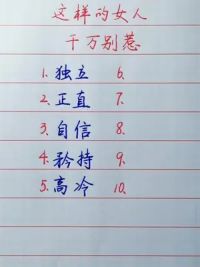 这样的女人
千万别惹
1. 独立 6.
2. 正直 7.
3. 自信 8.
4. 矜持 9.
5. 高冷 10.